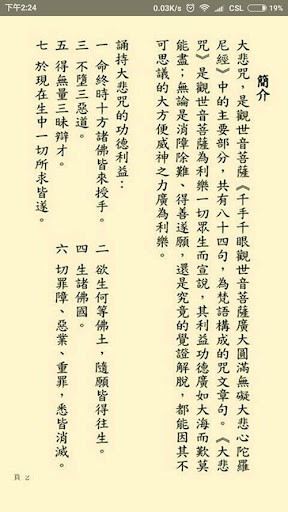 下午2:24 0.03K/s CSL 19%
簡介
大悲咒,是觀世音菩薩《千手千眼觀世音菩薩廣大圓滿無礙大悲心陀羅
尼經》中的主要部分,共有八十四句,為梵語構成的咒文章句。《大悲
咒》是觀世音菩薩為利樂一切眾生而宣說,其利益功德廣如大海而歎莫
能盡;無論是消障除難、得善遂願,還是究竟的覺證解脫,都能因其不
可思議的大方便威神之力廣為利樂。
誦持大悲咒的功德利益:
一 命終時十方諸佛皆來授手。 二 欲生何等佛土,隨願皆得往生。
三 不墮三惡道。 四 生諸佛國。
五 得無量三昧辯才。 六 切罪障、惡業、重罪,悉皆消滅。
七 於現在生中一切所求皆遂。
頁 2